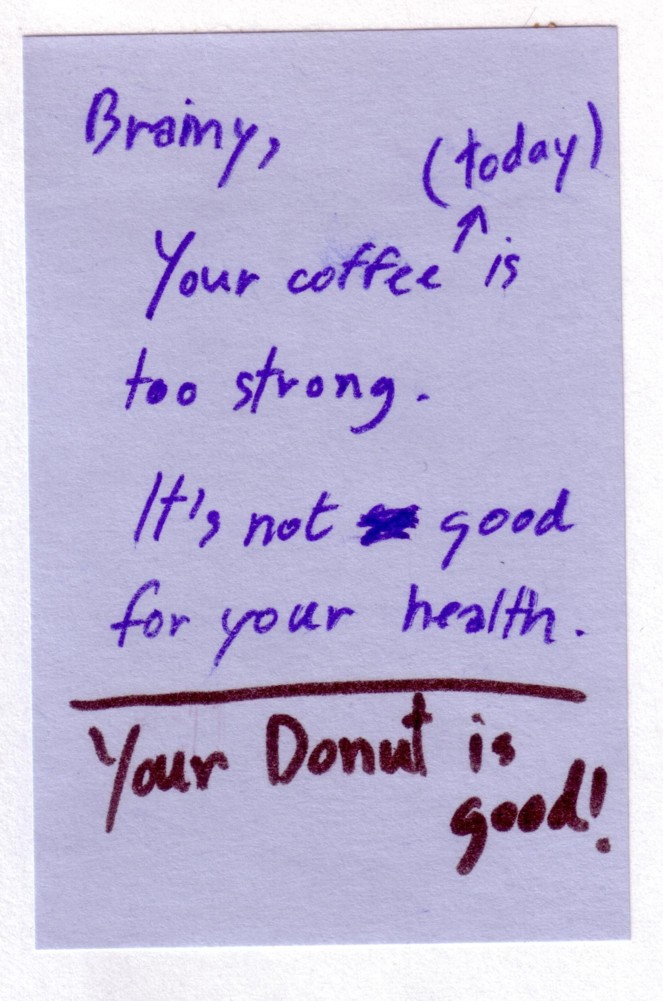 Brainy,
(today)
Your coffee ↑ is
too strong.
It's not good
for your health.
Your Donut is
good!